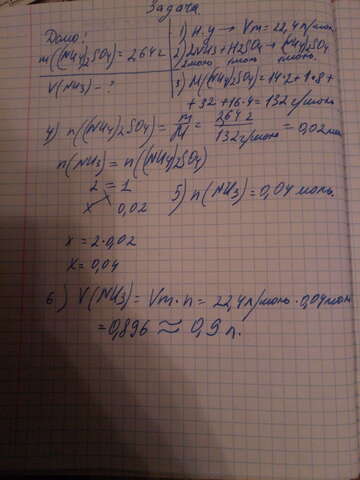 Задача
Дано:
m((NH4)2SO4) = 264 г
V(NH3) - ?
1) н.у → Vm = 22,4 л/моль
2) 2NH3 + H2SO4 → (NH4)2SO4
2моль 1моль 1моль
3) M((NH4)2SO4) = 14·2 + 1·8 +
+ 32 + 16·4 = 132 г/моль
4) n((NH4)2SO4) = m/M = 264 г/132 г/моль = 0,02 моль
n(NH3) = n((NH4)2SO4)
2 = 1
x 0,02
5) n(NH3) = 0,04 моль.
x = 2·0,02
x = 0,04
6) V(NH3) = Vm · n = 22,4 л/моль · 0,04 моль
= 0,896 ≈ 0,9 л.